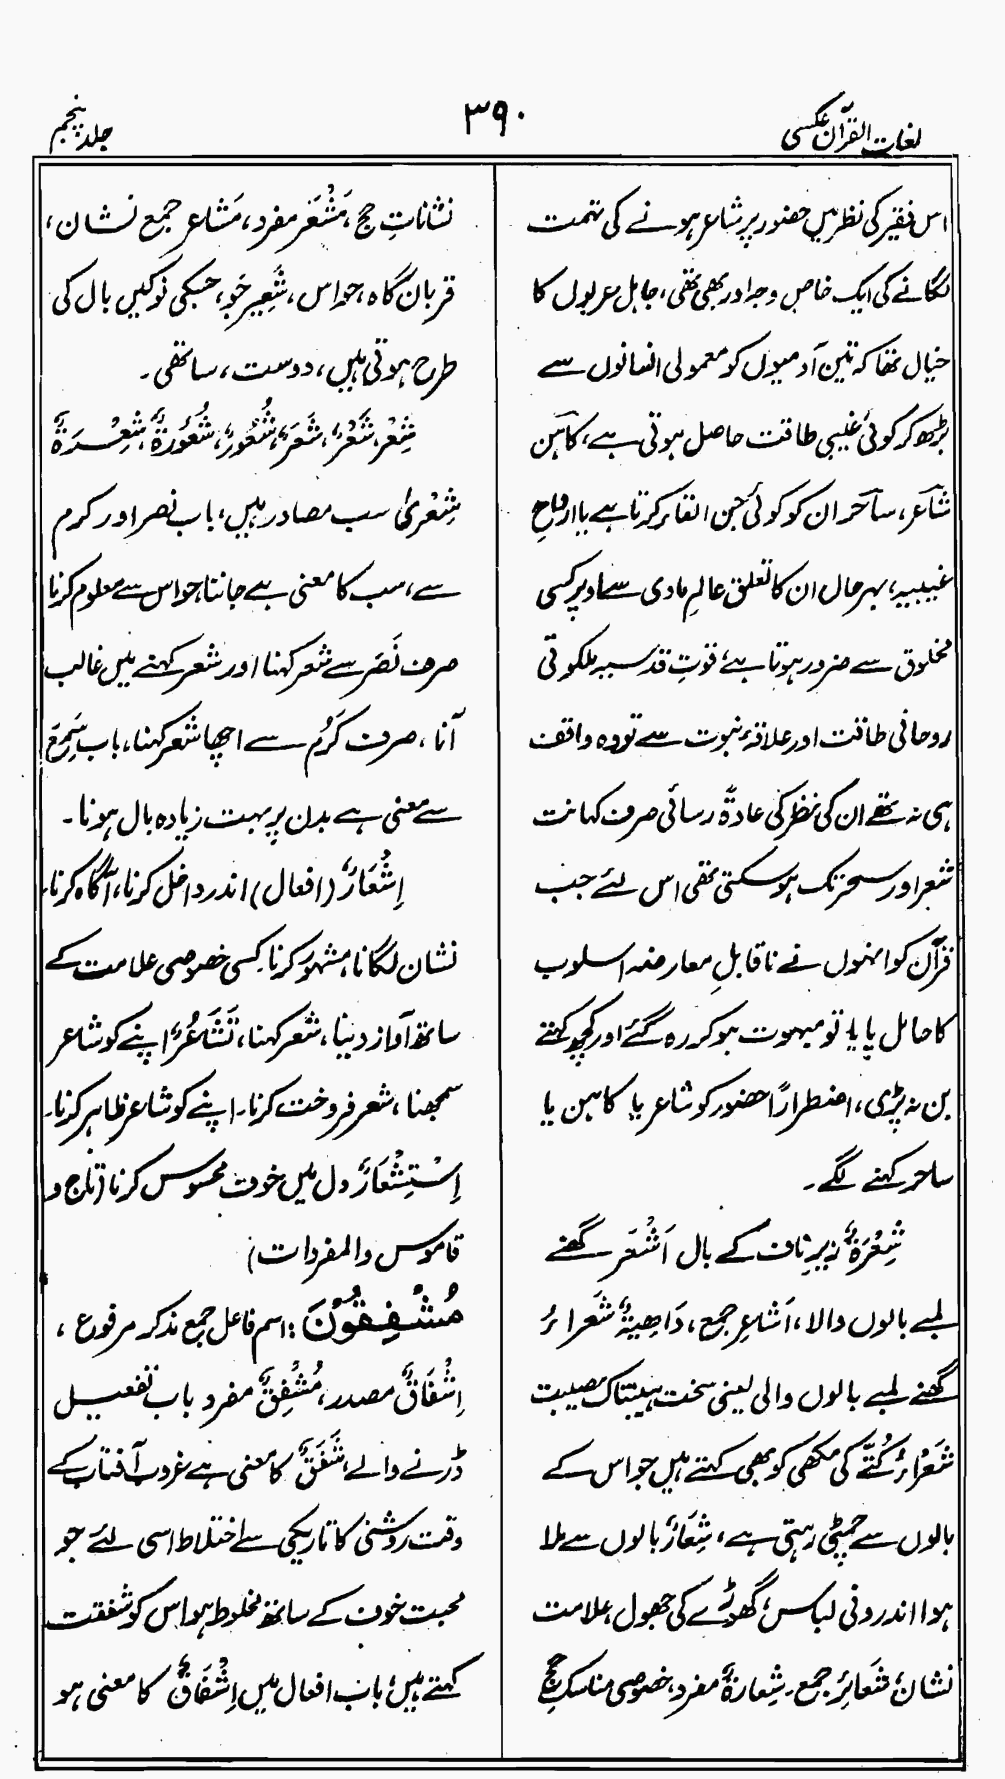 لغات القرآن عکسی
۳۹۰
جلد پنجم
اس فقیر کی نظر میں حضور پر شاعر ہونے کی تہمت
لگانے کی ایک خاص وجہ اور بھی تھی، جاہل عربوں کا
خیال تھا کہ تین آدمیوں کو معمولی انسانوں سے
بڑھ کر کوئی غیبی طاقت حاصل ہوتی ہے، کاہن
شاعر، ساحر ان کو کوئی جن القاء کرتا ہے یا ارواحِ
غیبیہ، بہر حال ان کا تعلق عالم مادی سے اوپر کسی
مخلوق سے ضرور ہوتا ہے، قوتِ قدسیہ ملکوتی
روحانی طاقت اور علاقۂ نبوت سے تو وہ واقف
ہی نہ تھے ان کی نظر کی عادۃً رسائی صرف کہانت
شعر اور سحر تک ہو سکتی تھی اس لئے جب
قرآن کو انہوں نے ناقابلِ معارضہ اسلوب
کا حامل پایا تو مبہوت ہو کر رہ گئے اور کچھ کہتے
بن نہ پڑی، اضطراراً حضور کو شاعر یا کاہن یا
ساحر کہنے لگے۔
شِعْرَةٌ زیرِ ناف کے بال اَشْعَر گھنے
لمبے بالوں والا، اَشَاعِر جمع، دَاهِيَةٌ شَعْرَاءُ
گھنے لمبے بالوں والی یعنی سخت ہیبتناک مصیبت
شَعْرَاءُ کُتّے کی مکھی کو بھی کہتے ہیں جو اس کے
بالوں سے چمٹی رہتی ہے، شِعَارٌ بالوں سے ملا
ہوا اندرونی لباس، گھوڑے کی جھول، علامت
نشان، شَعَائِر جمع۔ شِعَارَةٌ مفرد، خصوصی مناسک حج
نشاناتِ حج، مَشْعَر مفرد، مَشَاعر جمع نشان،
قربان گاہ، حواس، شَعِیر جَو، جسکی نوکیں بال کی
طرح ہوتی ہیں، دوست، ساتھی۔
شِعْر، شَعْرٌ، شَعَرٌ، شُعُورٌ، شُعُورَةٌ، شِعْرَةٌ
شِعْرىٰ سب مصادر ہیں، باب نصر اور کرم
سے، سب کا معنی ہے جاننا، حواس سے معلوم کرنا
صرف نَصَرَ سے شعر کہنا اور شعر کہنے میں غالب
آنا، صرف کَرُم سے اچھا شعر کہنا، باب سَمِعَ
سے معنی ہے بدن پر بہت زیادہ بال ہونا۔
اِشْعَارٌ (افعال) اندر داخل کرنا، آگاہ کرنا،
نشان لگانا، مشہور کرنا۔ کسی خصوصی علامت کے
ساتھ آواز دینا، شعر کہنا، تَشَاعُرٌ اپنے کو شاعر
سمجھنا، شعر فروخت کرنا۔ اپنے کو شاعر ظاہر کرنا۔
اِسْتِشْعَارٌ دل میں خوف محسوس کرنا (تاج و
قاموس والمفردات)
مُشْفِقُوْنَ: اسم فاعل جمع مذکر مرفوع،
اِشْفَاقٌ مصدر، مُشْفِقٌ مفرد باب تفعیل
ڈرنے والے، شَفَقٌ کا معنی ہے غروب آفتاب کے
وقت روشنی کا تاریکی سے اختلاط اسی لئے جو
محبت خوف کے ساتھ مخلوط ہو اس کو شفقت
کہتے ہیں، باب افعال میں اِشْفَاقٌ کا معنی ہو